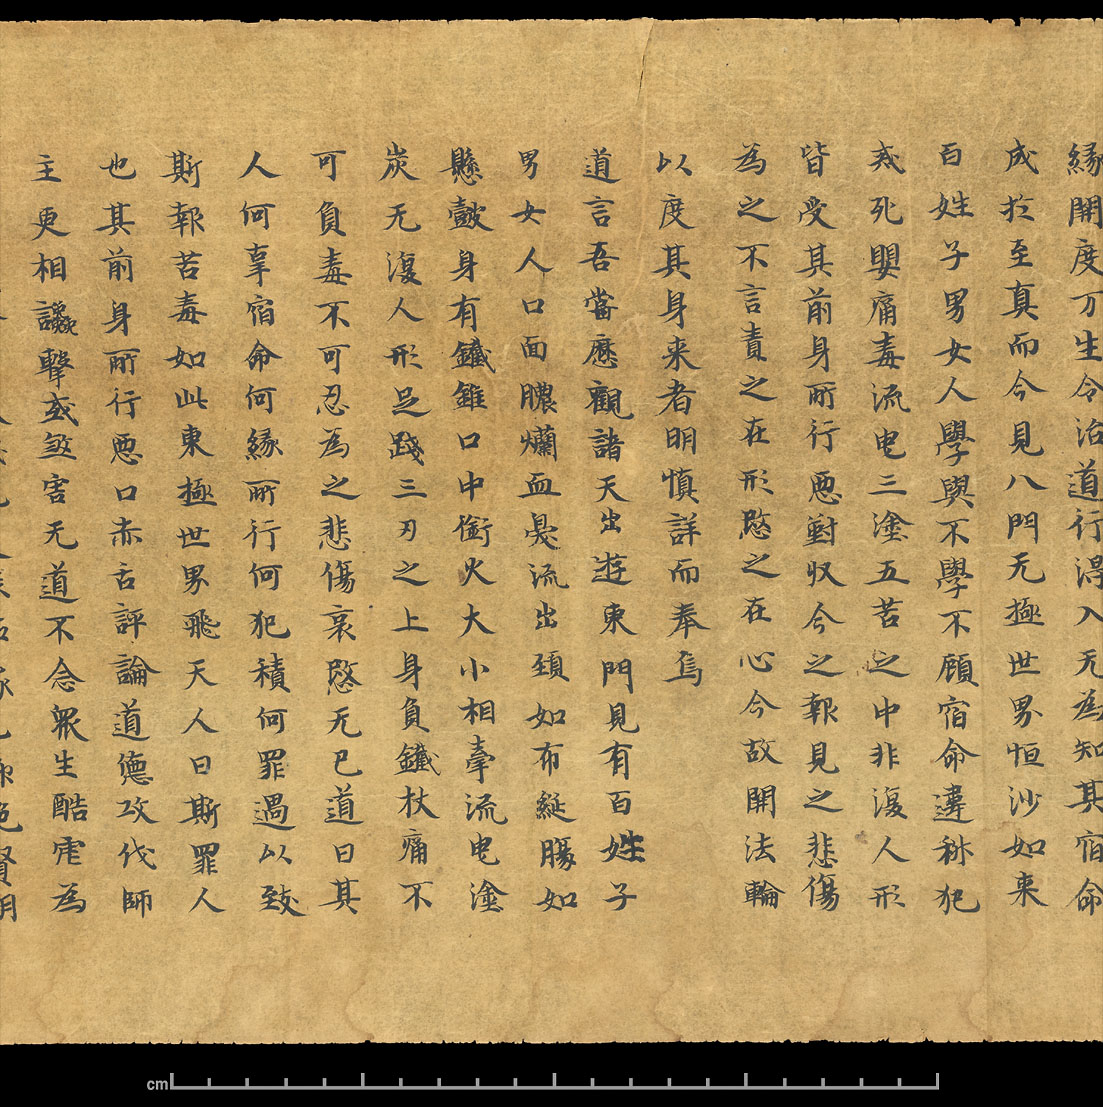 緣開度万生令治道行得入无為知其宿命
成於至真而今見八門无極世界恒沙如来
百姓子男女人學與不學不顧宿命違科犯
戒死嬰痛毒流曳三塗五苦之中非復人形
皆受其前身所行惡對収今之報見之悲傷
為之不言責之在形愍之在心今故開法輪
以度其身来者明慎詳而奉焉
道言吾當歷觀諸天出遊東門見有百姓子
男女人口面膿爛血臭流出頚如布綖腸如
懸鼓身有鐵錐口中銜火大小相牽流曳塗
炭无復人形足踐三刃之上身負鐵杖痛不
可負毒不可忍為之悲傷哀愍无已道曰其
人何辜宿命何緣所行何犯積何罪過以致
斯報苦毒如此東極世界飛天人曰斯罪人
也其前身所行惡口赤舌評論道德攻伐師
主更相讒擊或煞害无道不念衆生酷虐為